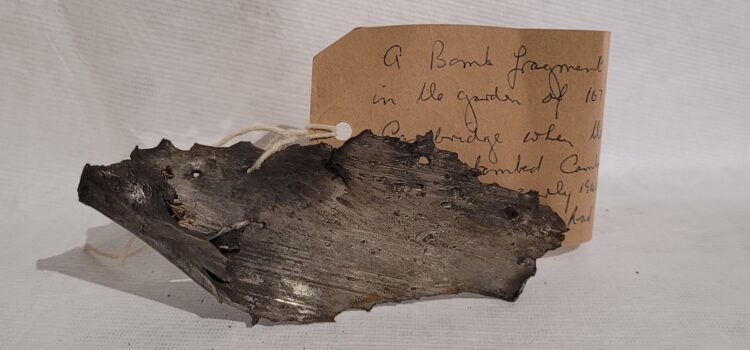 A Bomb fragment
in the garden of 167
Cambridge when
bombed Camb
194
had